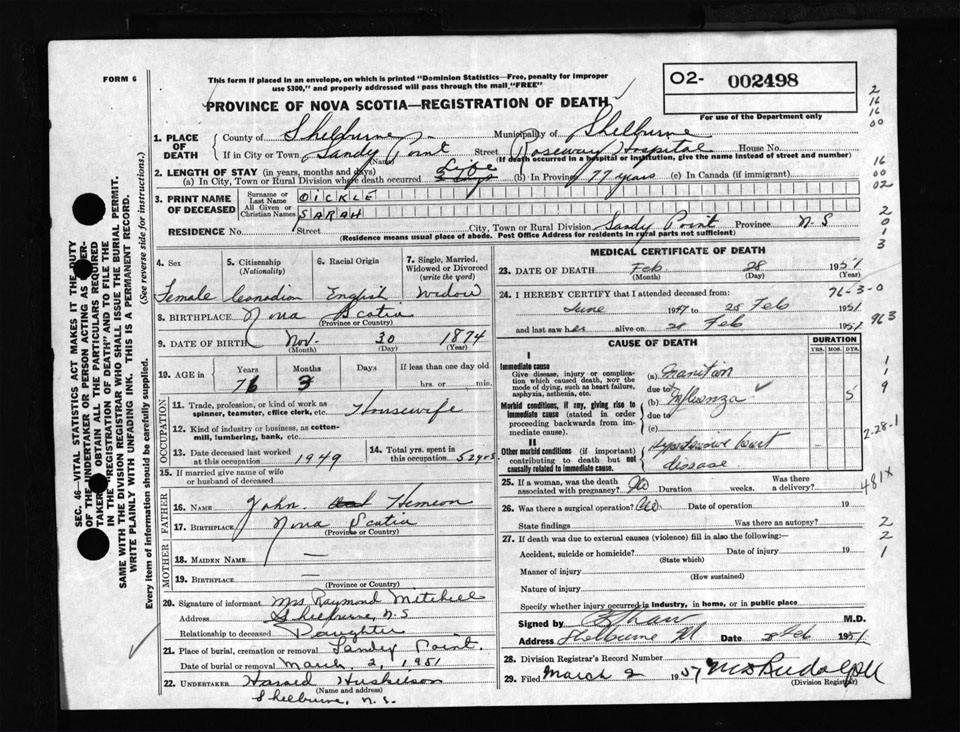 FORM 6
This form if placed in an envelope, on which is printed "Dominion Statistics—Free, penalty for improper
use $300," and properly addressed will pass through the mail "FREE"
O2- 002498
For use of the Department only
PROVINCE OF NOVA SCOTIA—REGISTRATION OF DEATH
1. PLACE OF DEATH { County of Shelburne Municipality of Shelburne
If in City or Town Sandy Point Street Roseway Hospital House No.
(Name) (If death occurred in a hospital or institution, give the name instead of street and number)
2. LENGTH OF STAY (in years, months and days)
(a) In City, Town or Rural Division where death occurred Life (b) In Province 77 years (c) In Canada (if immigrant)
3. PRINT NAME OF DECEASED { Surname or Last Name DICKLE
All Given or Christian Names SARAH
RESIDENCE No. Street City, Town or Rural Division Sandy Point Province N S
(Residence means usual place of abode. Post Office Address for residents in rural parts not sufficient)
4. Sex 5. Citizenship (Nationality) 6. Racial Origin 7. Single, Married, Widowed or Divorced (write the word)
Female Canadian English Widow
8. BIRTHPLACE Nova Scotia
(Province or Country)
9. DATE OF BIRTH Nov. 30 1874
(Month) (Day) (Year)
10. AGE in Years Months Days If less than one day old
76 3 hrs. or min.
OCCUPATION
11. Trade, profession, or kind of work as spinner, teamster, office clerk, etc. Housewife
12. Kind of industry or business, as cotton-mill, lumbering, bank, etc.
13. Date deceased last worked at this occupation 1949 14. Total yrs. spent in this occupation 52 yrs
15. If married give name of wife or husband of deceased
FATHER
16. NAME John Hemeon
17. BIRTHPLACE Nova Scotia
(Province or Country)
MOTHER
18. MAIDEN NAME —
19. BIRTHPLACE —
(Province or Country)
20. Signature of informant Mrs Raymond Mitchell
Address Shelburne, N.S
Relationship to deceased Daughter
21. Place of burial, cremation or removal Sandy Point.
Date of burial or removal March 2, 1951
22. UNDERTAKER Harold Huskilson
(Name and address)
Shelburne, N.S.
MEDICAL CERTIFICATE OF DEATH
23. DATE OF DEATH Feb 28 1951
(Month) (Day) (Year)
24. I HEREBY CERTIFY that I attended deceased from: 76-3-0
June 1949 to 28 Feb 1951
and last saw her alive on 28 Feb 1951
963
CAUSE OF DEATH DURATION
YRS. MOS. DYS.
I
Immediate cause
Give disease, injury or complication which caused death, Not the mode of dying, such as heart failure, asphyxia, asthenia, etc.
(a) Inanition
due to
(b) Influenza 5
Morbid conditions, if any, giving rise to immediate cause (stated in order proceeding backwards from immediate cause).
due to
(c)
II
Other morbid conditions (if important) contributing to death but not causally related to immediate cause.
Hypertensive heart
disease
2-28-1
481X
25. If a woman, was the death associated with pregnancy? No Duration weeks. Was there a delivery?
26. Was there a surgical operation? No Date of operation 19
State findings Was there an autopsy?
27. If death was due to external causes (violence) fill in also the following:—
Accident, suicide or homicide? Date of injury 19
(State which)
Manner of injury
(How sustained)
Nature of injury
Specify whether injury occurred in industry, in home, or in public place
Signed by M.D.
Address Shelburne Date 28 Feb 1951
28. Division Registrar's Record Number
29. Filed March 2 1951
(Division Registrar)
SEC. 46—VITAL STATISTICS ACT MAKES IT THE DUTY
OF THE UNDERTAKER OR PERSON ACTING AS UNDER-
TAKER TO OBTAIN ALL THE PARTICULARS REQUIRED
IN THE "REGISTRATION OF DEATH" AND TO FILE THE
SAME WITH THE DIVISION REGISTRAR WHO SHALL ISSUE THE BURIAL PERMIT.
WRITE PLAINLY WITH UNFADING INK. THIS IS A PERMANENT RECORD.
Every item of information should be carefully supplied. (See reverse side for instructions.)
2
16
16
00
16
00
02
2
0
1
3
1
1
9
2
2
1